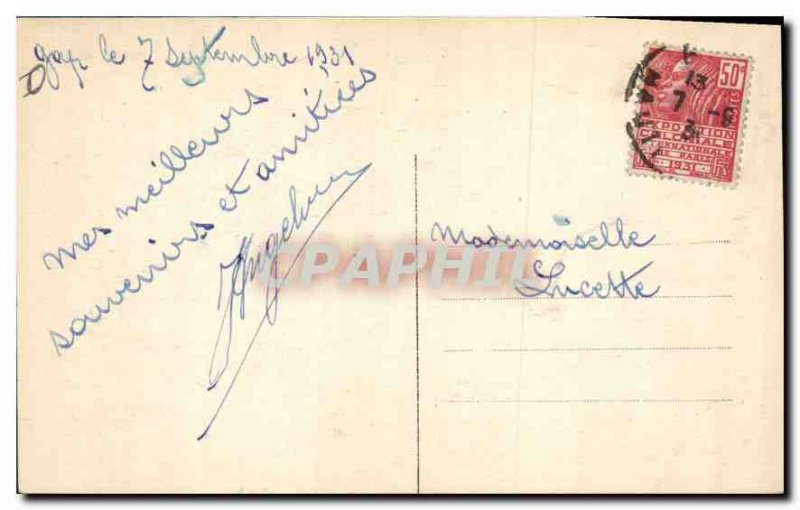 Gap le 7 Septembre 1931
mes meilleurs
souvenirs et amitiées
Mademoiselle
Lucette
50c
EXPOSITION
COLONIALE
INTERNATIONALE
DE PARIS
1931
13
7 - 9
31
CPAPHIL